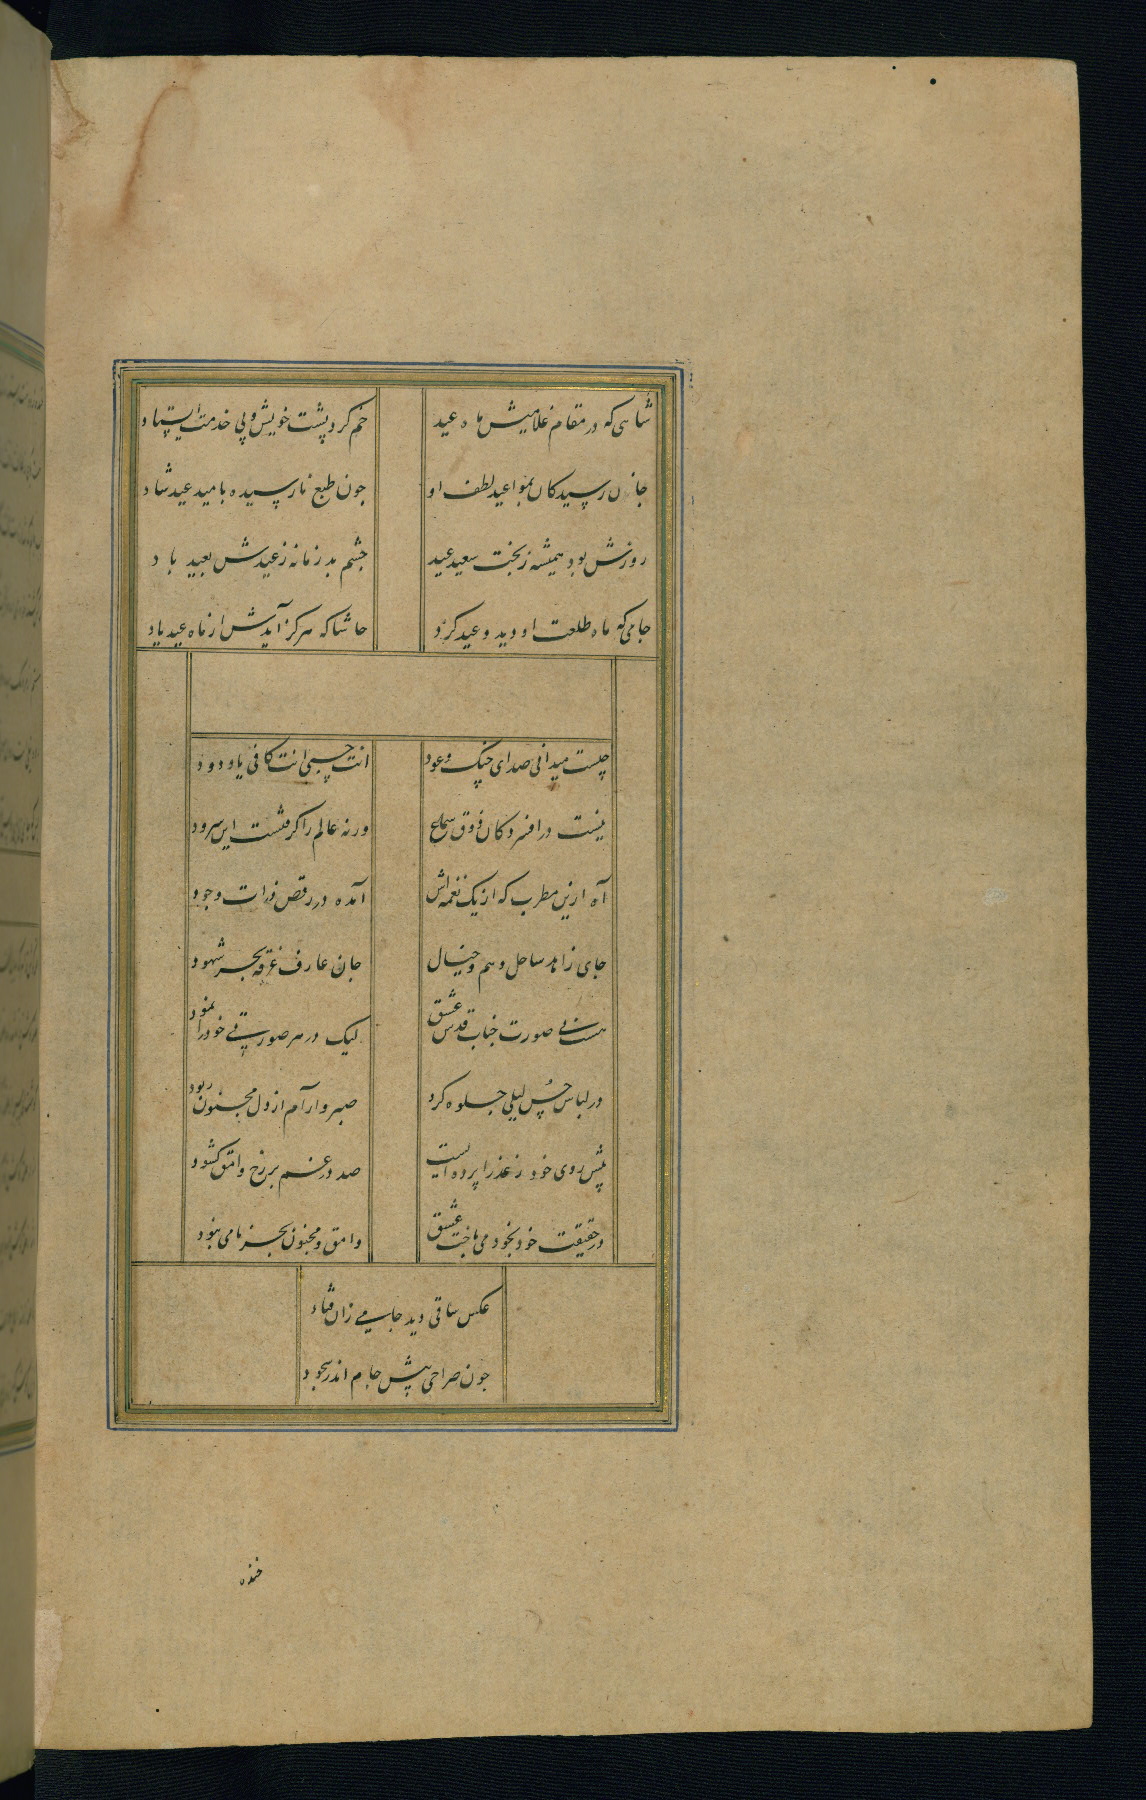 شاهی که در مقام غلامیش ماه عید
خم کرد پشت خویش و پی خدمت ایستاد
جانان رسیدگان بمواعید لطف او
چون طبع نارسیده بامید عید شاد
روزش بود همیشه ز بخت سعید عید
چشم بد زمانه ز عیدش بعید باد
جامی که ماه طلعت او دید و عید کرد
حاشا که هرگز آیدش از ماه عید یاد
چیست میدانی صدای چنگ و عود
انت حسبی انت کافی یا ودود
نیست در افسردگان ذوق سماع
ورنه عالم را گرفتست این سرود
آه ازین مطرب که از یک نغمه‌اش
آمده در رقص ذرات وجود
جای زاهد ساحل وهم و خیال
جان عارف غرقه بحر شهود
هست بی صورت جناب قدس عشق
لیک در هر صورتی خود را نمود
در لباس حسن لیلی جلوه کرد
صبر و آرام از دل مجنون ربود
پیش روی خود ز عذرا پرده بست
صد در غم بر رخ وامق گشود
در حقیقت خود بخود می باخت عشق
وامق و مجنون بجز نامی نبود
عکس ساقی دید جامی زان فتاد
چون صراحی پیش جام اندر سجود
خنده